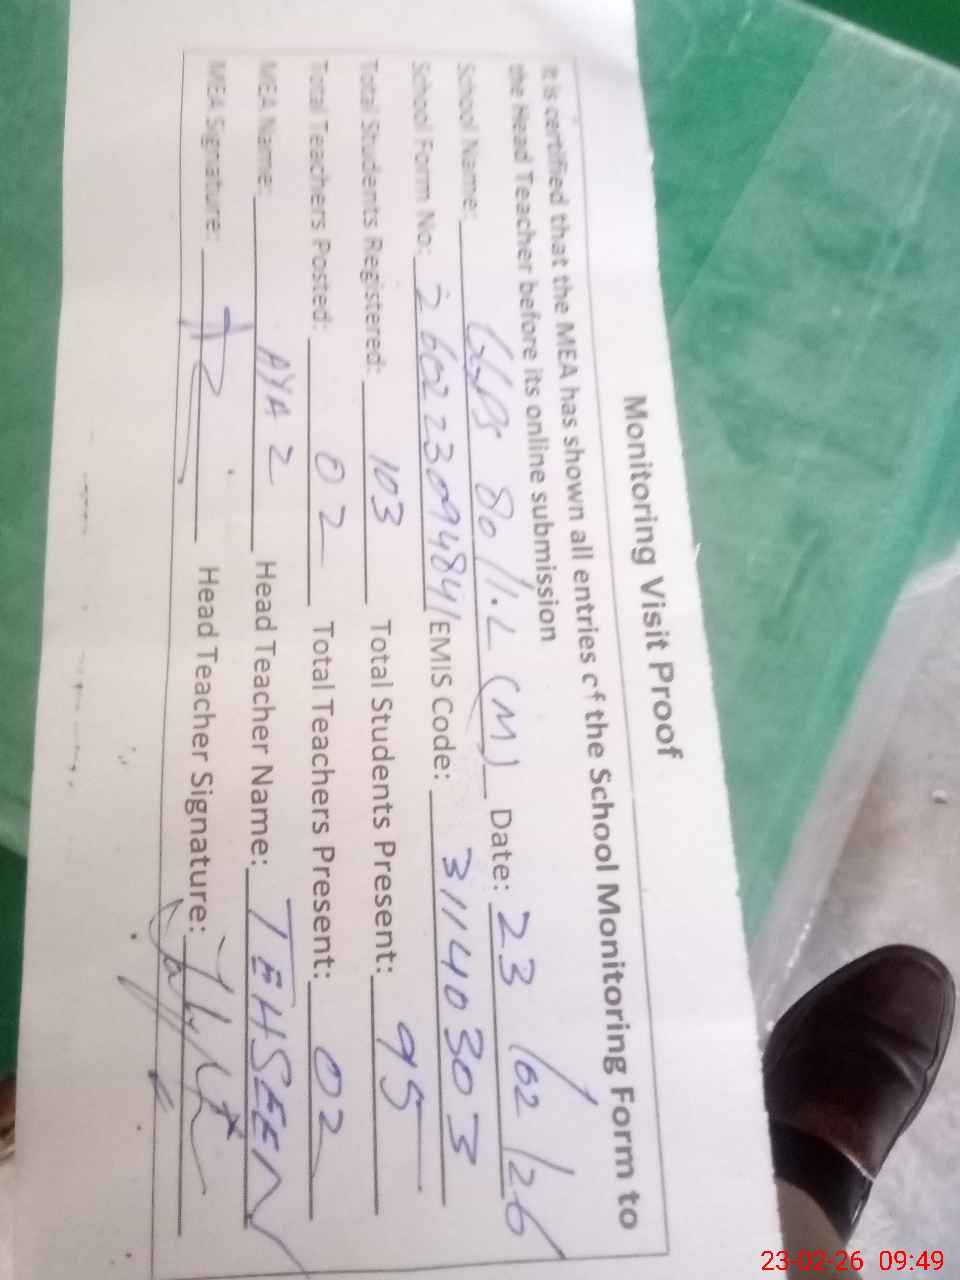 Monitoring Visit Proof
It is certified that the MEA has shown all entries of the School Monitoring Form to
the Head Teacher before its online submission
School Name: GPS 80/1.L (M) Date: 23/02/26
School Form No: 26022309484 EMIS Code: 31140303
Total Students Registered: 103 Total Students Present: 95
Total Teachers Posted: 02 Total Teachers Present: 02
MEA Name: AYAZ Head Teacher Name: TEHSEEN
MEA Signature: Head Teacher Signature:
23-02-26 09:49